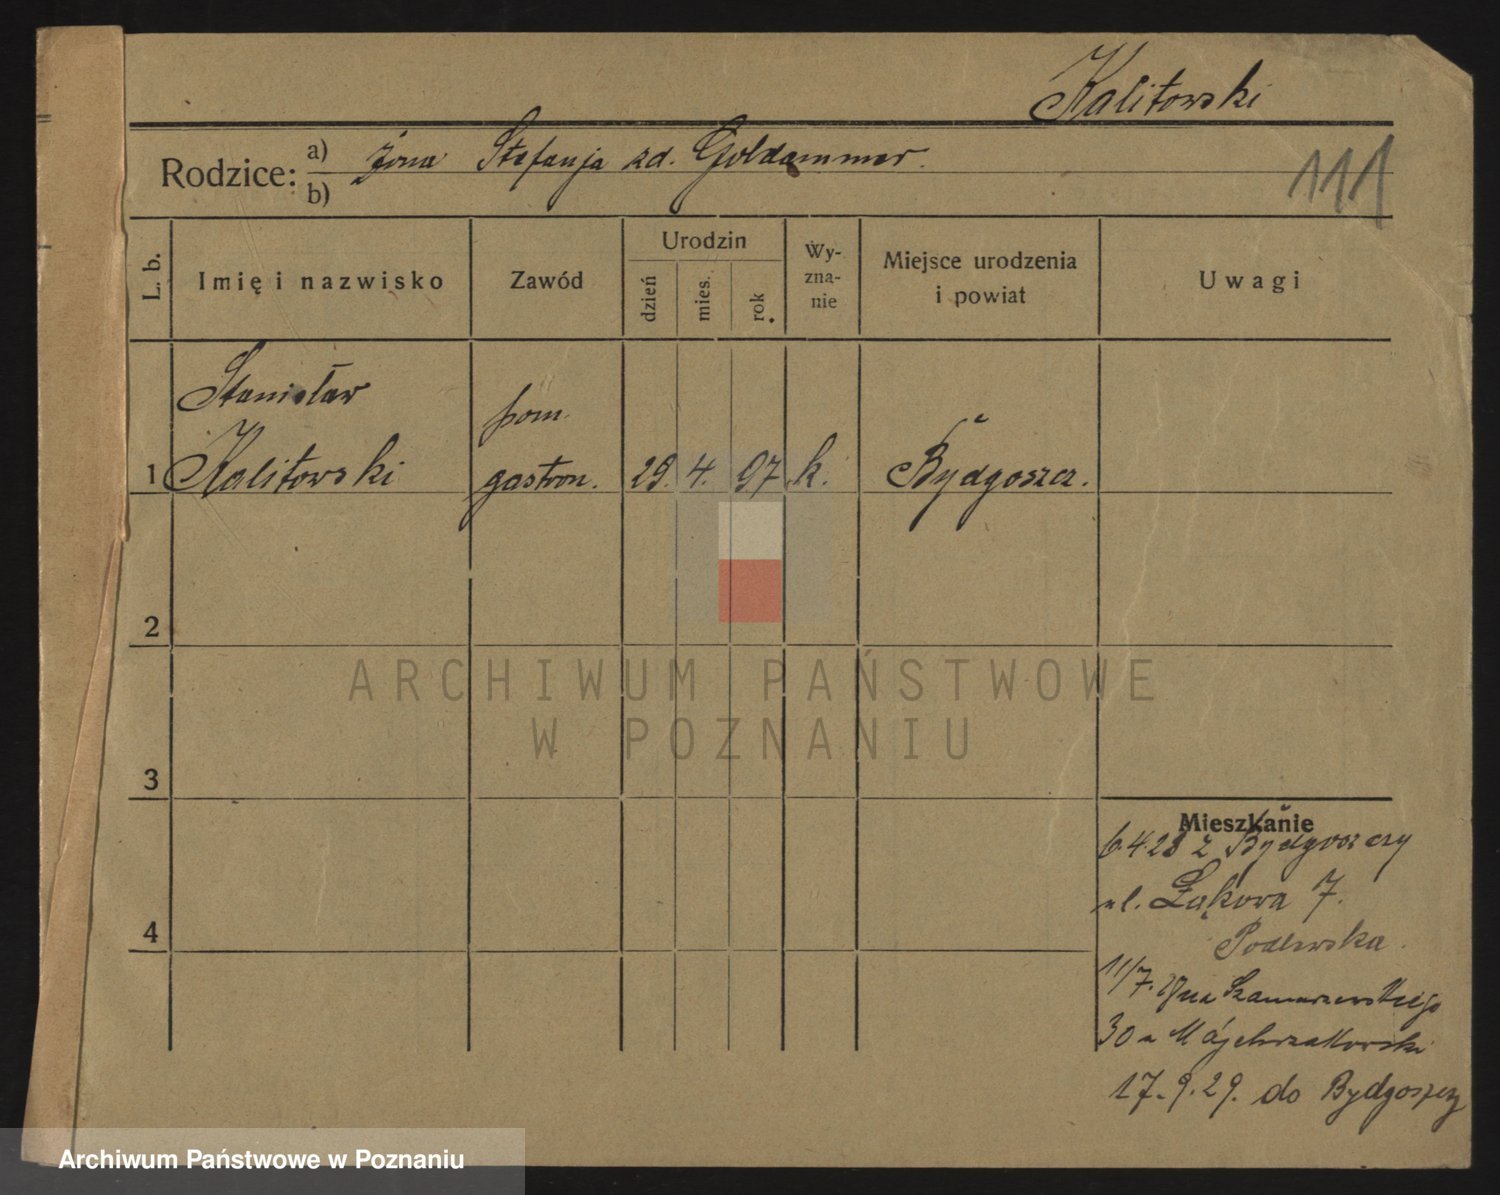 Kalitowski
Rodzice: a) żona Stefanja zd. Goldammer.
b)
111
L. b.
Imię i nazwisko
Zawód
Urodzin
dzień
mies.
rok
Wy-
zna-
nie
Miejsce urodzenia
i powiat
Uwagi
Stanisław
pom.
1 Kalitowski gastron. 29. 4. 97 k. Bydgoszcz.
2
3
4
ARCHIWUM PAŃSTWOWE
W POZNANIU
Mieszkanie
6.4.28 z Bydgoszczy
ul. Łąkowa 7.
Podlewska.
11/7. Szamarzewskiego
30 a Majchrzakowski
17.9.29. do Bydgoszczy
Archiwum Państwowe w Poznaniu